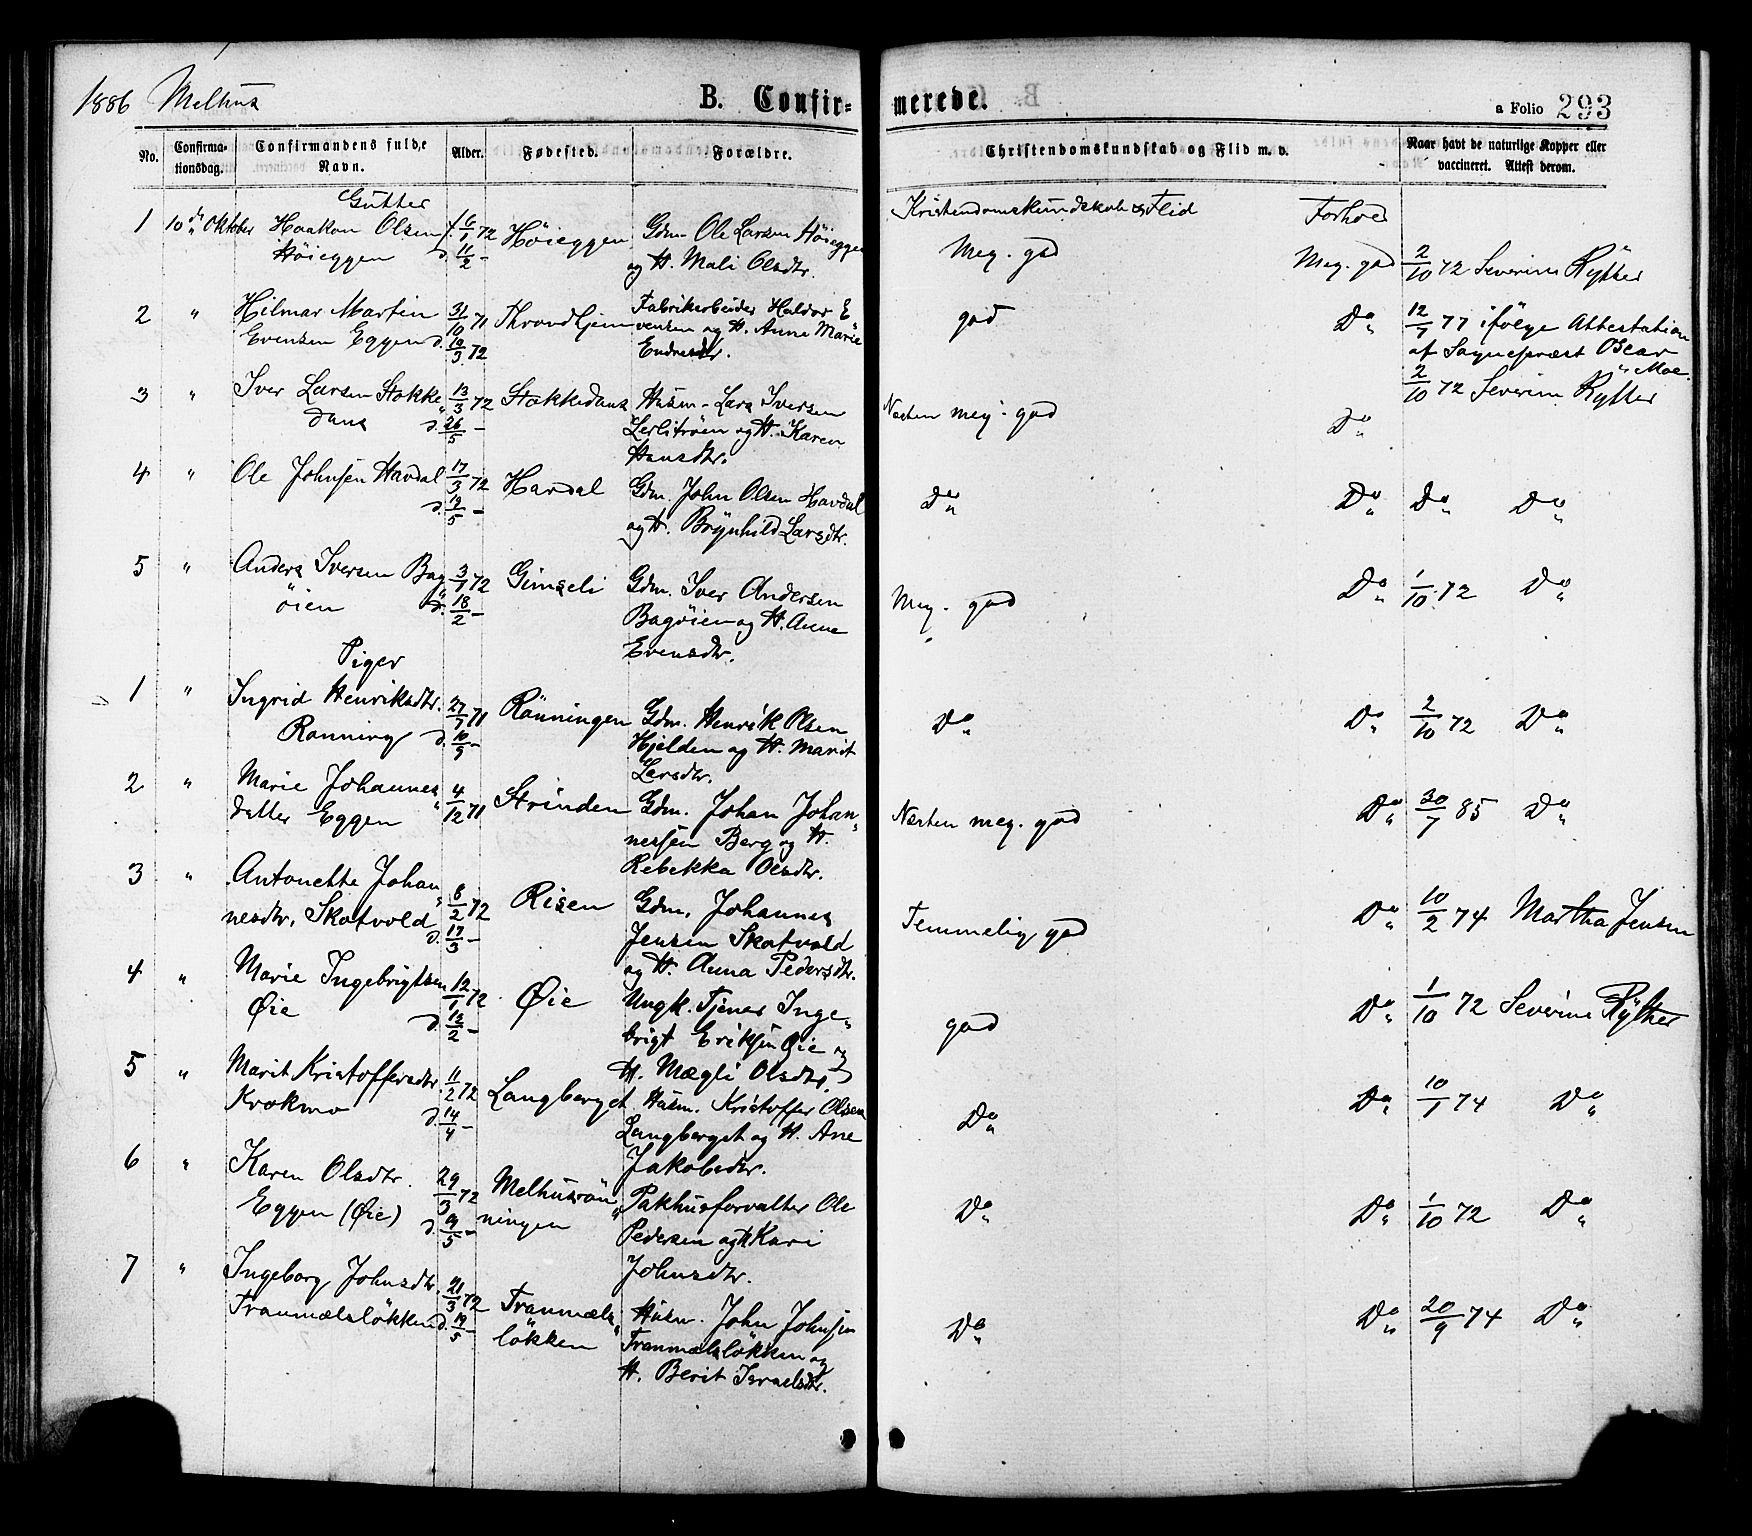 1886 Melhus
B. Confir- merede.
a Folio 293
No. Confirmationsdag. Confirmandens fulde Navn. Alder. Fødested. Forældre. Christendomskundskab og Flid m. v. Naar havt de naturlige Kopper eller vaccineret. Attest derom.
Gutter
Kristendomskundskab & Flid Forhold
1 10de Oktober Haakon Olsen f. 6/1 72 Høieggen Gdm. Ole Larsen Høieggen
Høieggen d. 11/2 - og H. Mali Olsdtr. Meg. god Meg. god 2/10 72 Severine Rytter
2 " Hilmar Martin 31/10 71 Throndhjem Fabrikarbeider Haldor E
Evensen Eggen d. 10/3 72 vensen og H. Anne Marie god Do 12/7 77 ifølge Attestation
Endresdtr. af Sognepræst Oscar Moe.
3 " Iver Larsen Stokke 13/3 72 Stokkedans Husm. Lars Iversen Næsten meg. god Do 2/10 72 Severine Rytter
dans d. 26/5 - Lerlitrøen og H. Karen
Hansdtr.
4 " Ole Johnsen Havdal 17/3 72 Havdal Gdm. John Olsen Havdal Do Do Do Do
d. 19/5 - og H. Brynhild Larsdtr.
5 " Anders Iversen Bag 3/1 72 Gimseli Gdm. Iver Andersen Meg. god Do 1/10 72 Do
øien d. 18/2 - Bagøien og H. Anne
Evensdtr.
Piger
1 " Ingrid Henriksdtr. 27/7 71 Rønningen Gdm. Henrik Olsen Do Do 2/10 72 Do
Rønning d. 10/9 - Hjelden og H. Marit
Larsdtr.
2 " Marie Johannes 4/12 71 Strinden Gdm. Johan Johan Næsten meg. god Do 30/7 85 Do
datter Eggen nessen Berg og H.
Rebekka Olsdtr.
3 " Antonette Johan 8/2 72 Risen Gdm. Johannes Temmelig god Do 10/2 74 Martha Jensen
nesdtr. Skotvold d. 17/3 - Jensen Skotvold
og H. Anna Pedersdtr.
4 " Marie Ingebrigtsen 12/1 72 Øie Ungk. Tjener Inge god Do 1/10 72 Severine Rytter
Øie d. 18/2 - brigt Eriksen Øie og
H. Mægli Olsdtr.
5 " Marit Kristoffersdtr. 11/2 72 Langberget Husm. Kristoffer Olsen Do Do 10/1 74 Do
Krokmo d. 14/4 - Langberget og H. Ane
Jakobsdtr.
6 " Karen Olsdtr. 29/3 72 Melhusrøn Pakhusforvalter Ole Do Do 1/10 72 Do
Eggen (Øie) d. 9/5 - ningen Pedersen og H Kari
Johnsdtr.
7 " Ingeborg Johnsdtr. 21/3 72 Tranmæls Husm. John Johnsen Do Do 20/9 74 Do
Tranmælsløkken d. 19/5 - løkken Tranmælsløkken og
H. Berit Israelsdtr.